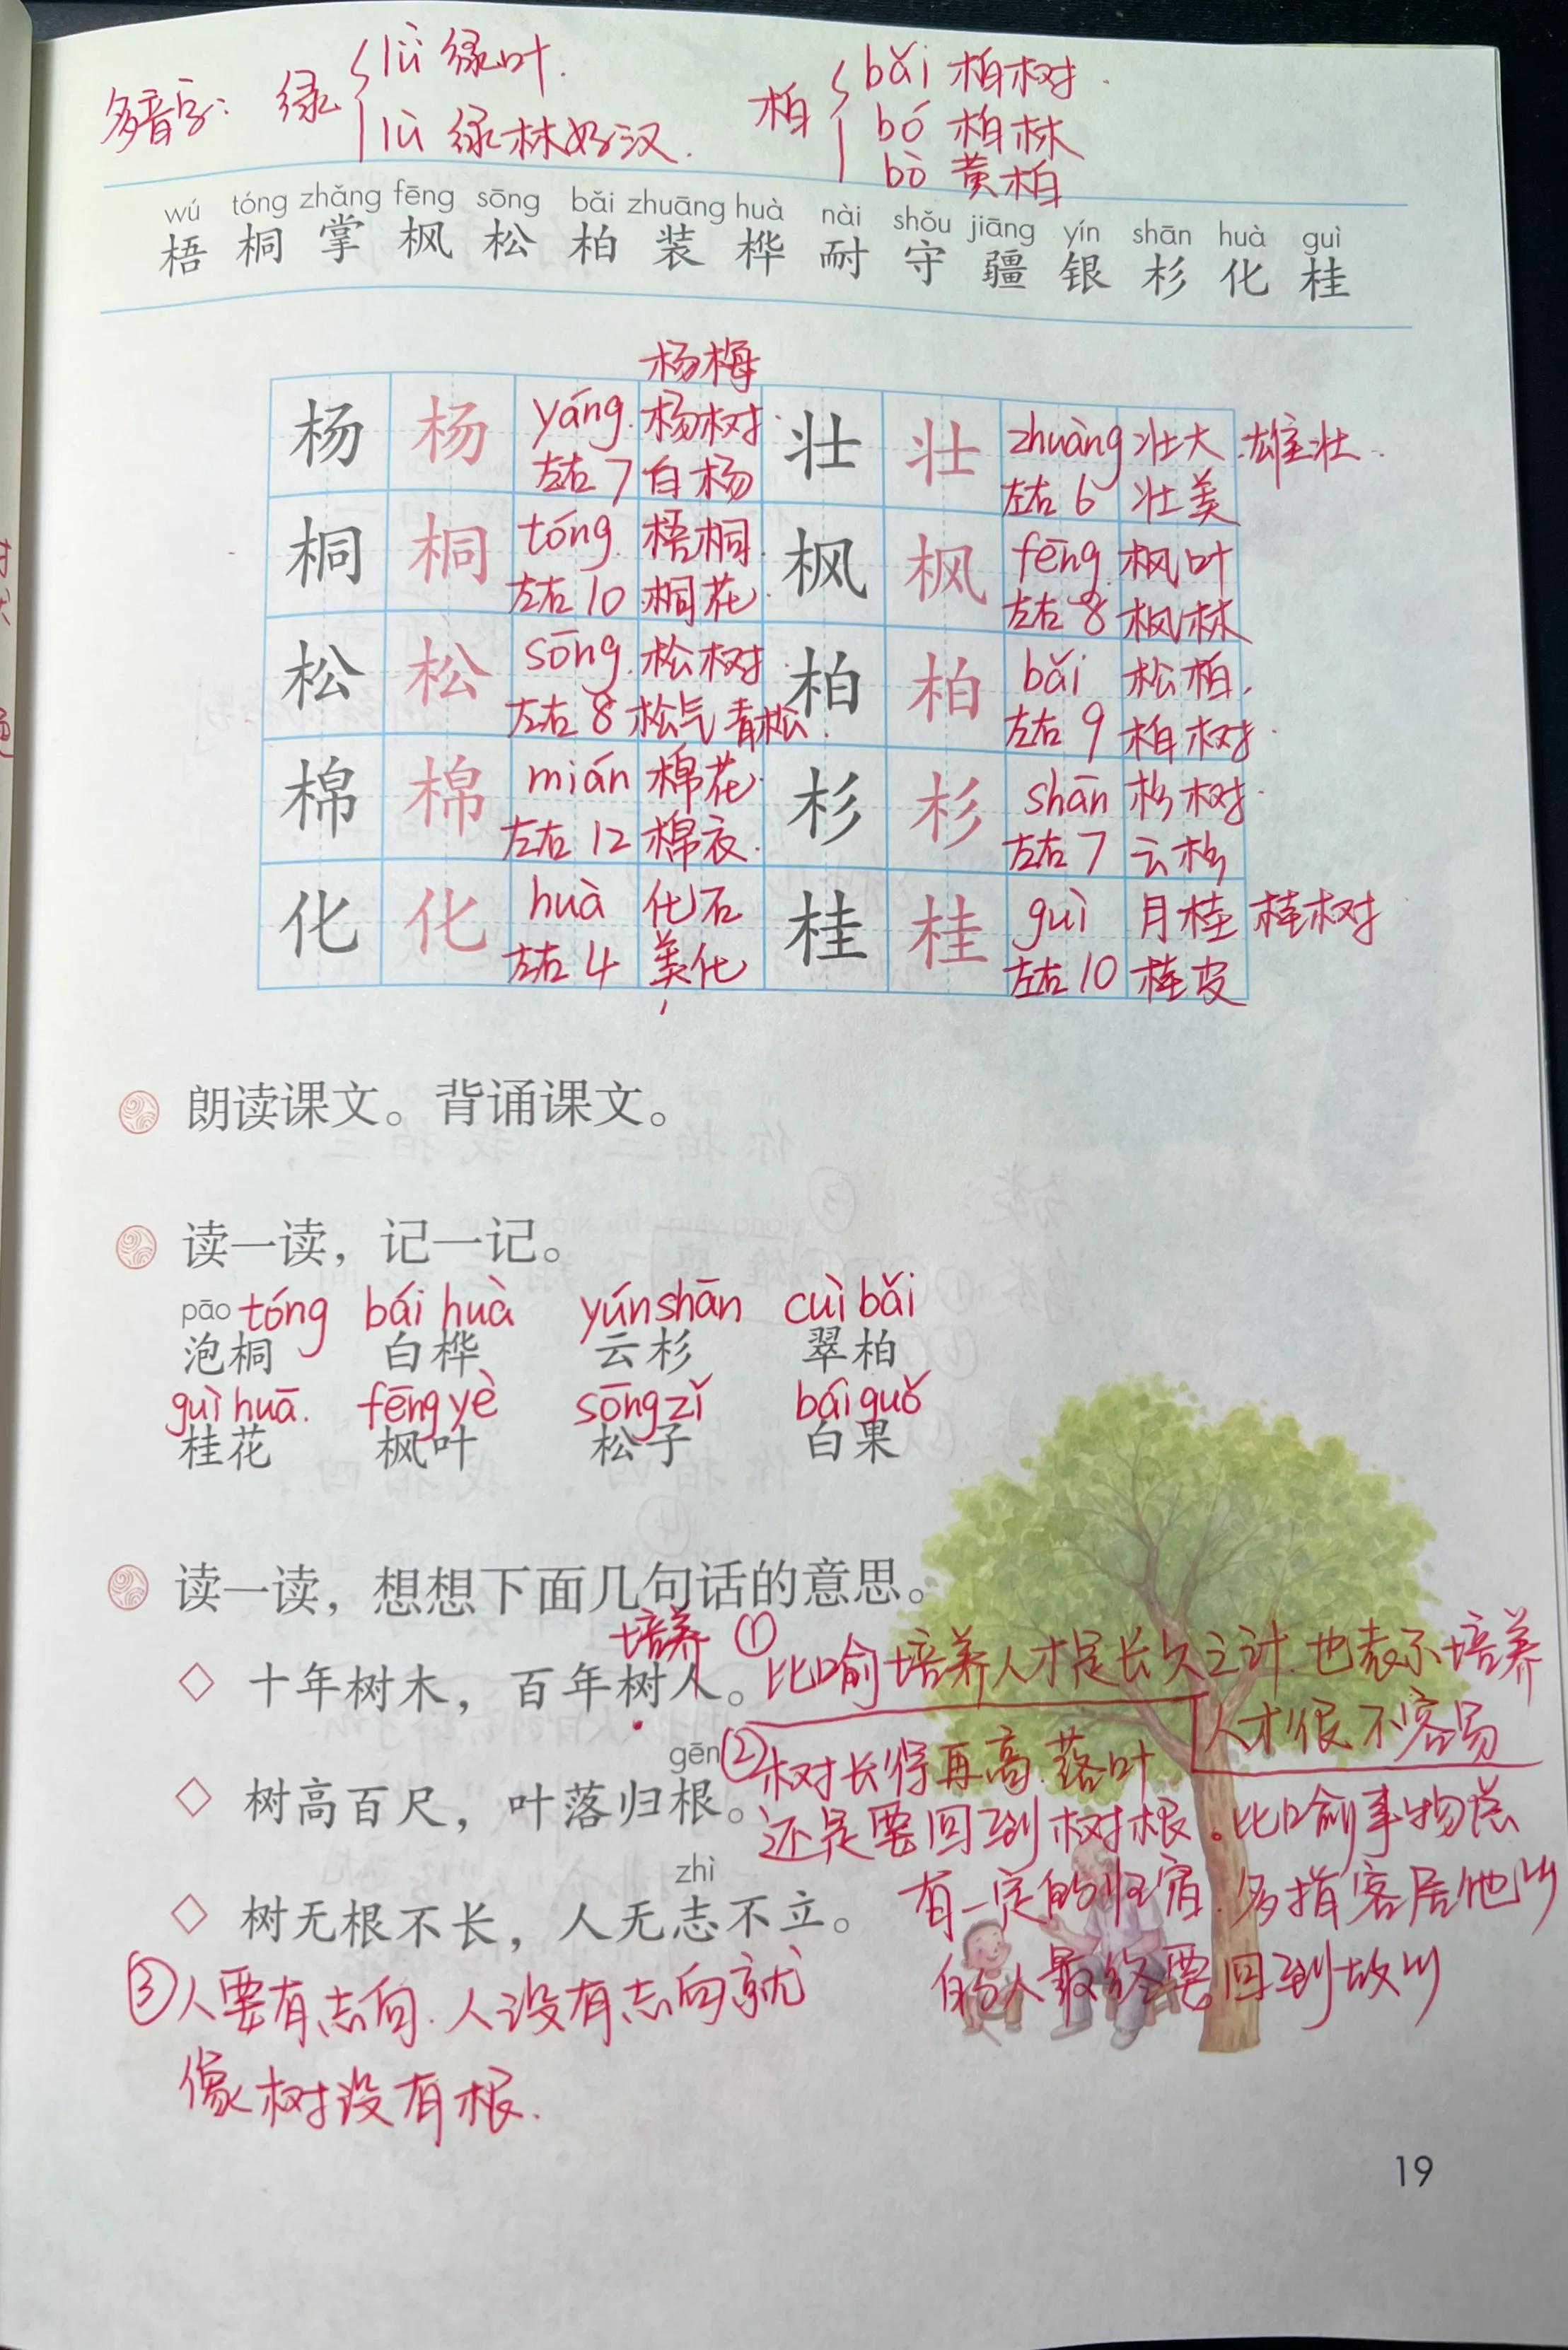 多音字：绿 lǜ 绿叶.
lù 绿林好汉.
柏 bǎi 柏树.
bó 柏林
bò 黄柏
wú tóng zhǎng fēng sōng bǎi zhuāng huà nài shǒu jiāng yín shān huà guì
梧 桐 掌 枫 松 柏 装 桦 耐 守 疆 银 杉 化 桂
杨梅
杨 杨 yáng. 杨树. 壮 壮 zhuàng 壮大.雄壮.
左右 7 白杨 左右 6 壮美
桐 桐 tóng. 梧桐. 枫 枫 fēng. 枫叶
左右 10 桐花. 左右 8 枫林
松 松 sōng. 松树. 柏 柏 bǎi 松柏.
左右 8 松气 青松. 左右 9 柏树.
棉 棉 mián 棉花. 杉 杉 shān 杉树.
左右 12 棉衣. 左右 7 云杉
化 化 huà 化石 桂 桂 guì 月桂 桂树
左右 4 美化 左右 10 桂皮
朗读课文。背诵课文。
读一读，记一记。
pāo tóng bái huà yún shān cuì bǎi
泡桐 白桦 云杉 翠柏
guì huā. fēng yè sōng zǐ bái guǒ
桂花 枫叶 松子 白果
读一读，想想下面几句话的意思。
培养
十年树木，百年树人。
①比喻培养人才是长久之计.也表示培养
人才很不容易
gēn
树高百尺，叶落归根。
②树长得再高.落叶
还是要回到树根。比喻事物总
有一定的归宿.多指客居他乡
的人最终要回到故乡
zhì
树无根不长，人无志不立。
③人要有志向.人没有志向就
像树没有根.
19